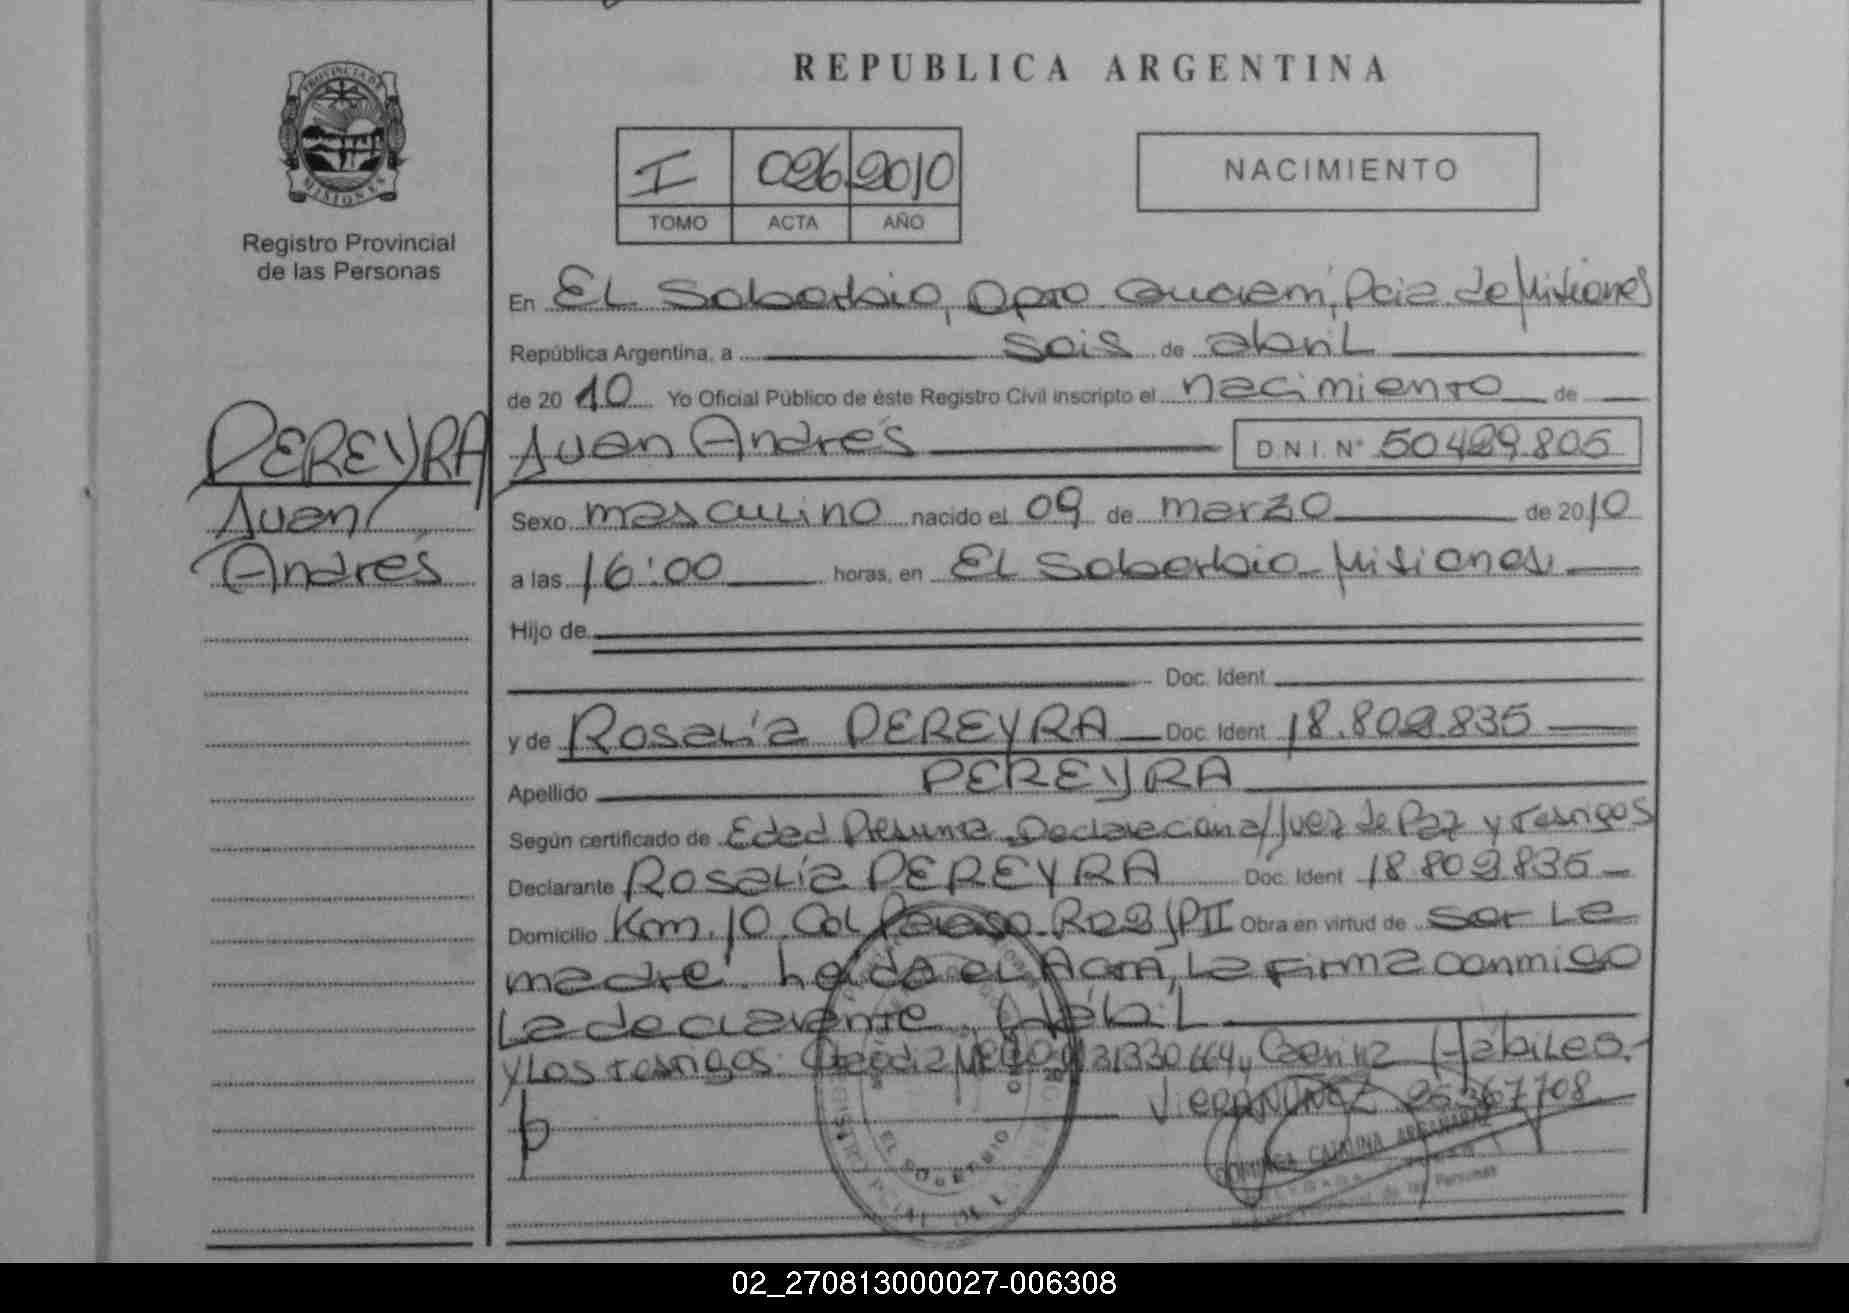 REPUBLICA ARGENTINA
PROVINCIA DE MISIONES
Registro Provincial
de las Personas
I 026 2010
TOMO ACTA AÑO
NACIMIENTO
PEREYRA
Juan
Andrés
En EL Soberbio, Dpto Guaraní, Pcia de Misiones
República Argentina, a seis de abril
de 2010 Yo Oficial Público de éste Registro Civil inscripto el nacimiento de
Juan Andrés D.N.I. N° 50429805
Sexo masculino nacido el 09 de marzo de 2010
a las 16:00 horas, en EL Soberbio Misiones
Hijo de
Doc. Ident.
y de Rosalía PEREYRA Doc. Ident. 18.802.835
Apellido PEREYRA
Según certificado de Edad Presunta Declaraciona/Juez de Paz y Testigos
Declarante Rosalía PEREYRA Doc. Ident. 18.802.835
Domicilio Km. 10 Col R02 Obra en virtud de ser La
madre. Leída el Acta, La firma conmigo
La declarante Hábil
y Los testigos: 31330664 y Hábiles.
25367708
EL SOBERBIO
CATALINA
de las Personas
02_270813000027-006308